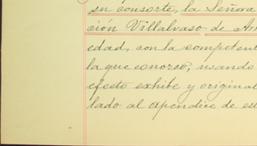 su consorte, la Señora
ción Villalvaso de
edad, con la competent
la que conozco; usando
efecto exhibe y original
lado al apendice de